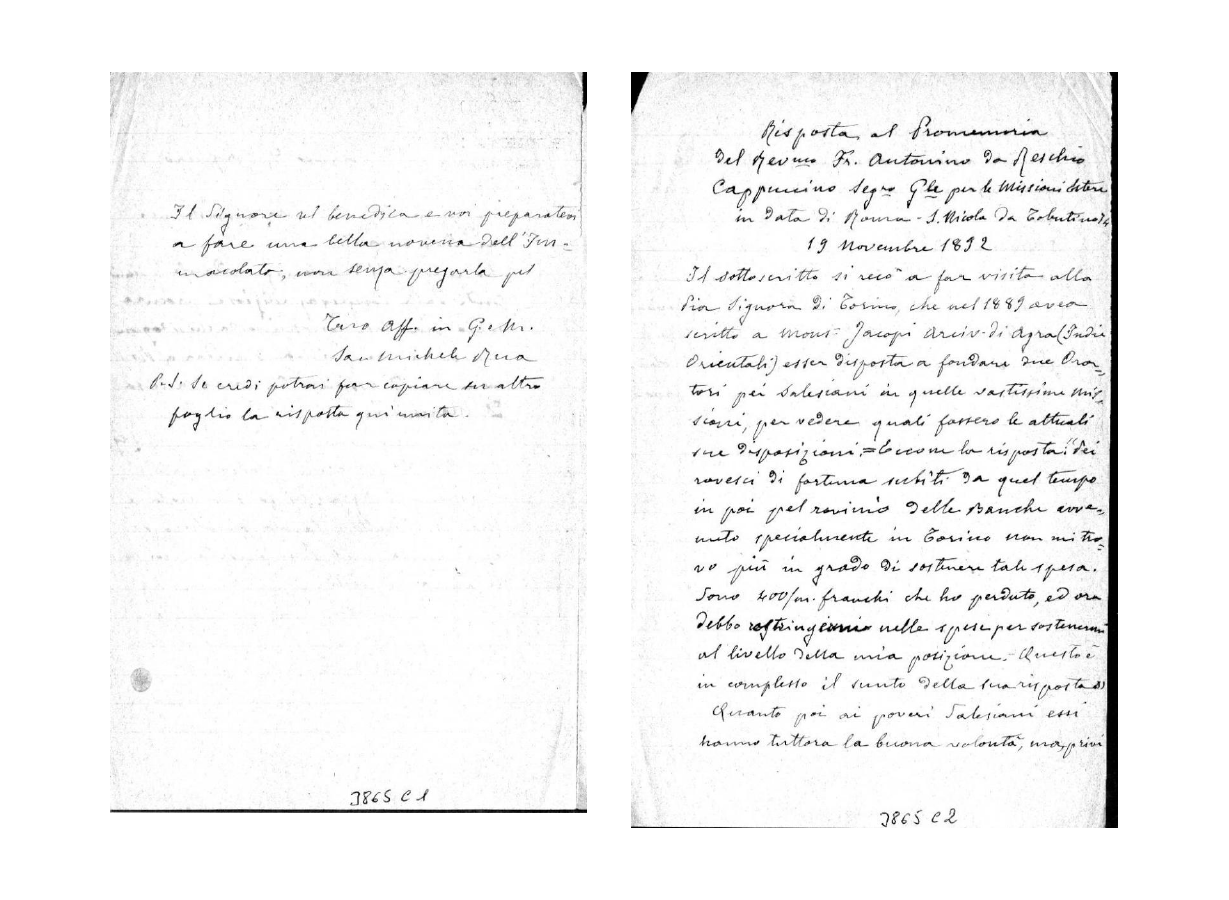 Il Signore vi benedica e voi preparatevi
a fare una bella novena dell'Im=
macolata, non senza pregarla pel
Tuo Aff. in G. e M.
Sac. Michele Rua
P.S. Se credi potrai far copiare su altro
foglio la risposta qui unita.
3865 C 1
Risposta al Promemoria
del Rev.mo Fr. Antonino da Reschio
Cappuccino Segr.o G.le per le Missioni Estere
in data di Roma - S. Nicola da Tolentino
19 Novembre 1892
Il sottoscritto si recò a far visita alla
Pia Signora di Torino, che nel 1889 avea
scritto a Mons. Jacopi Arciv. di Agra (Indie
Orientali) esser disposta a fondare due Ora=
tori pei Salesiani in quelle vastissime mis=
sioni, per vedere quali fossero le attuali
sue disposizioni. = Eccone la risposta: "Dei
rovesci di fortuna subiti da quel tempo
in poi pel rovinio delle Banche avve=
nuto specialmente in Torino non mi tro=
vo più in grado di sostenere tale spesa.
Sono 400/m. franchi che ho perduto, ed ora
debbo nelle spese per sostenermi
al livello della mia posizione. - Questo è
in complesso il sunto della sua risposta
Quanto poi ai poveri Salesiani essi
hanno tuttora la buona volontà, ma, privi
3865 C 2